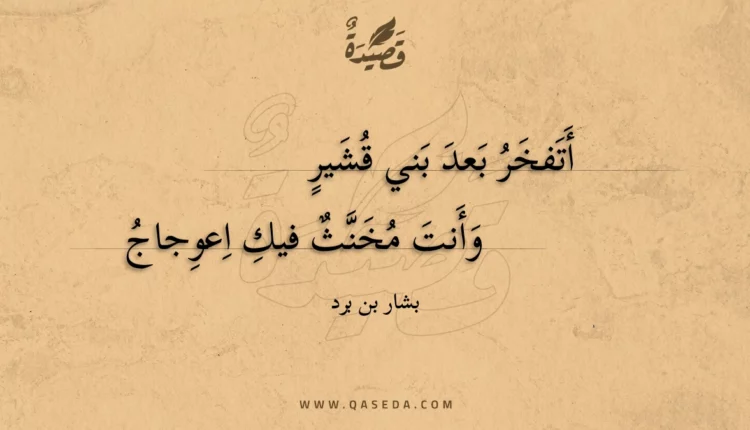 قَصِيْدَةٌ
أَتَفخَرُ بَعدَ بَني قُشَيرٍ
وَأَنتَ مُخَنَّثٌ فيكِ اِعوِجاجُ
بشار بن برد
WWW.QASEDA.COM